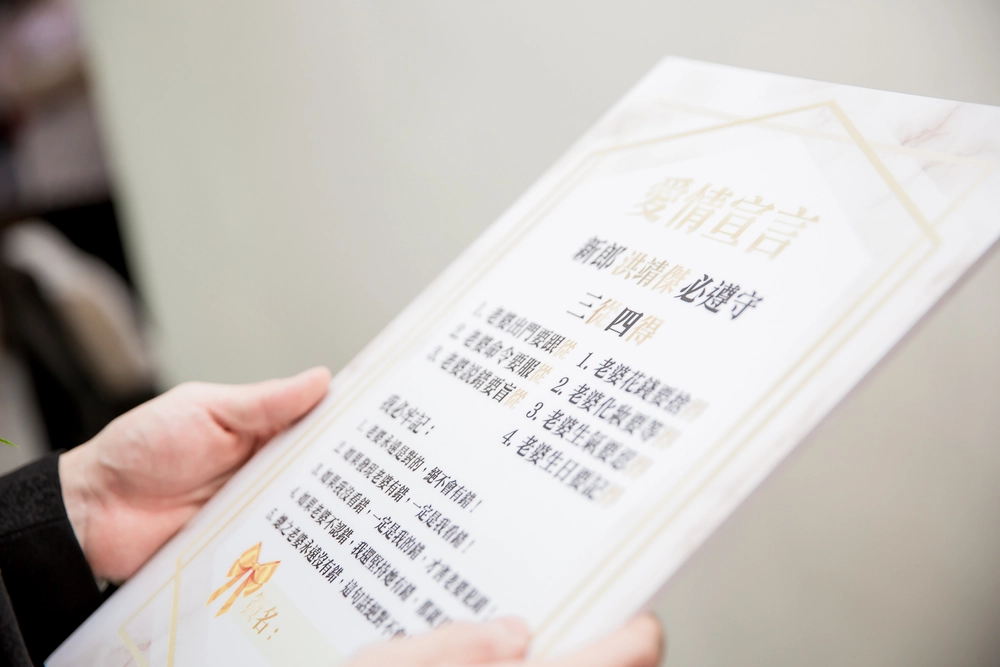 愛情宣言
新郎 洪靖傑 必遵守
三從四得
1. 老婆出門要跟從
2. 老婆命令要服從
3. 老婆說錯要盲從
1. 老婆花錢要捨得
2. 老婆化妝要等得
3. 老婆生氣要忍得
4. 老婆生日要記得
我必牢記：
1. 老婆永遠是對的，絕不會有錯！
2. 如果發現老婆有錯，一定是我看錯！
3. 如果我沒看錯，一定是我的錯，才害老婆犯錯！
4. 如果老婆不認錯，我還堅持她有錯，那就
5. 總之老婆永遠沒有錯，這句話絕對不會
簽名：